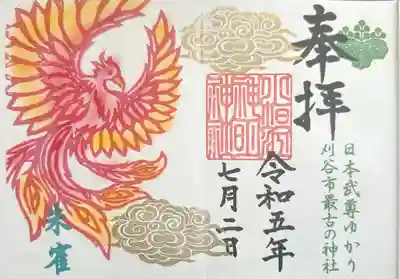 日本武尊ゆかり
刈谷市最古の神社
奉拝
小垣江
神明
神社
令和五年
七月二日
朱雀